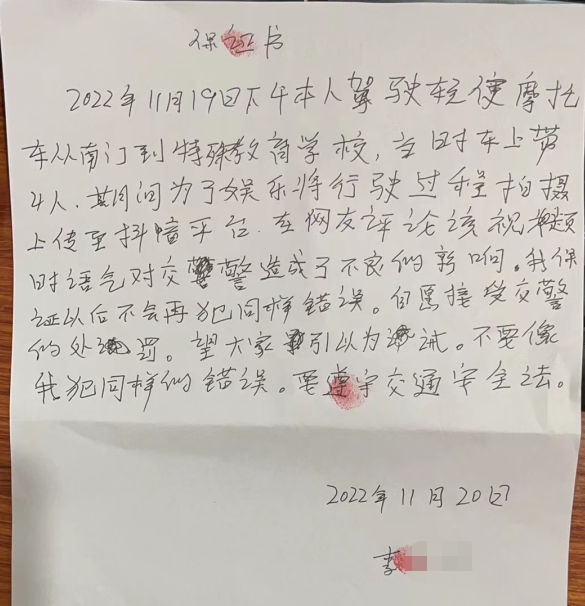 保证书
2022年11月19日下午本人驾驶轻便摩托
车从南门到特殊教育学校，当时车上带
4人．期间为了娱乐将行驶过程拍摄
上传至抖音平台．在网友评论该视频
时语气对交警造成了不良的影响。我保
证以后不会再犯同样错误。自愿接受交警
的处罚。望大家引以为戒。不要像
我犯同样的错误。要遵守交通安全法。
2022年11月20日
李